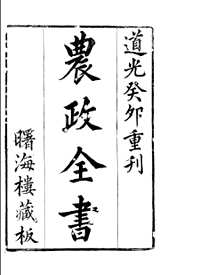 道光癸卯重刊
農政全書
曙海樓藏板